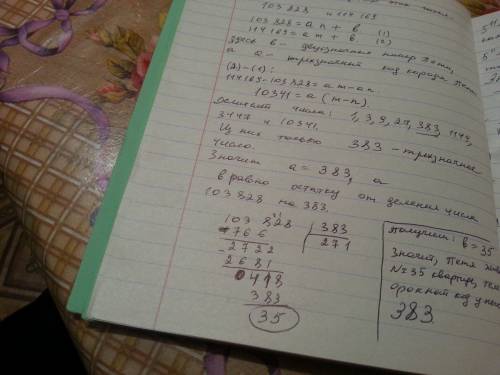 103 828 и 114 169
103 828 = an + b (1)
114 169 = am + b (2)
Здесь b - двузначный номер Пети,
а a - трёхзначный код города Пети
(2)-(1):
114169-103828 = am-an
10341 = a(m-n)
числа: 1, 3, 9, 27, 383, 1149,
3447 и 10341.
Из них только 383 - трёхзначное
число.
Значит a = 383, а
b равно остатку от деления числа
103 828 на 383.
103 828 383
766 271
2722
2681
418
383
35
Получим: b = 35
Значит, Петя
№35 квартире,
код у
383.